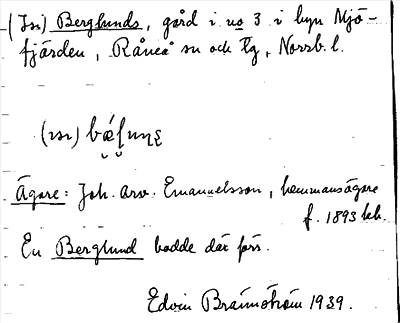 (Isi) Berglunds, gård i no 3 i byn Mjö-
fjärden, Råneå sn och tg, Norrb. l.
Ägare: Joh. Arv. Emanuelsson, hemmansägare
f. 1893 hh.
En Berglund bodde där förr.
Edvin Brännström 1939.